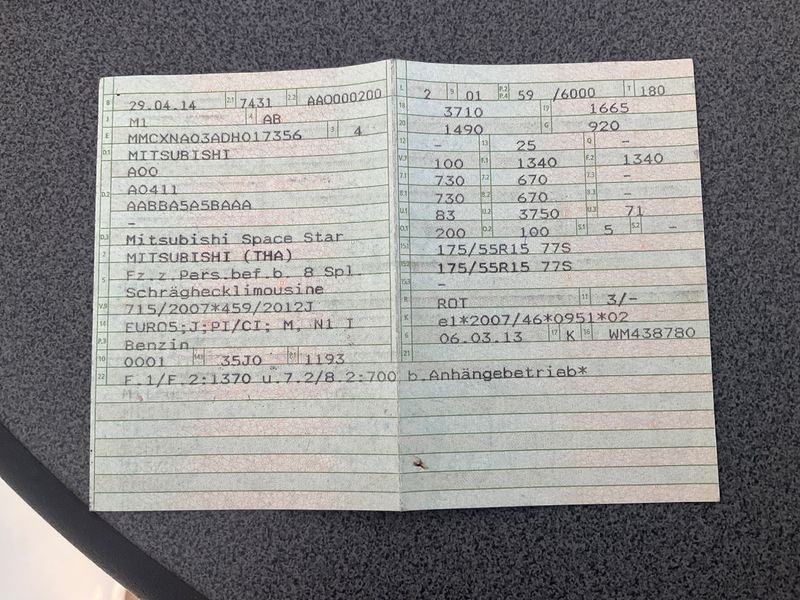 B 29.04.14 2.1 7431 2.2 AAO000200
J M1 4 AB
E MMCXNA03ADH017356 3 4
D.1 MITSUBISHI
A00
D.2 A0411
AABBA5A5BAAA
-
D.3 Mitsubishi Space Star
2 MITSUBISHI (THA)
5 Fz.z.Pers.bef.b. 8 Spl.
Schräghecklimousine
V.9 715/2007*459/2012J
14 EURO5;J;PI/CI; M, N1 I
P.3 Benzin
10 0001 14.1 35J0 P.1 1193
22 F.1/F.2:1370 u.7.2/8.2:700 b.Anhängebetrieb*
L 2 9 01 P.2 P.4 59 /6000 T 180
18 3710 19 1665
20 1490 G 920
12 - 13 25 Q -
V.7 100 F.1 1340 F.2 1340
7.1 730 7.2 670 7.3 -
8.1 730 8.2 670 8.3 -
U.1 83 U.2 3750 U.3 71
O.1 200 O.2 100 S.1 5 S.2 -
15.1 175/55R15 77S
15.2 175/55R15 77S
15.3 -
R ROT 11 3/-
K e1*2007/46*0951*02
6 06.03.13 17 K 16 WM438780
21